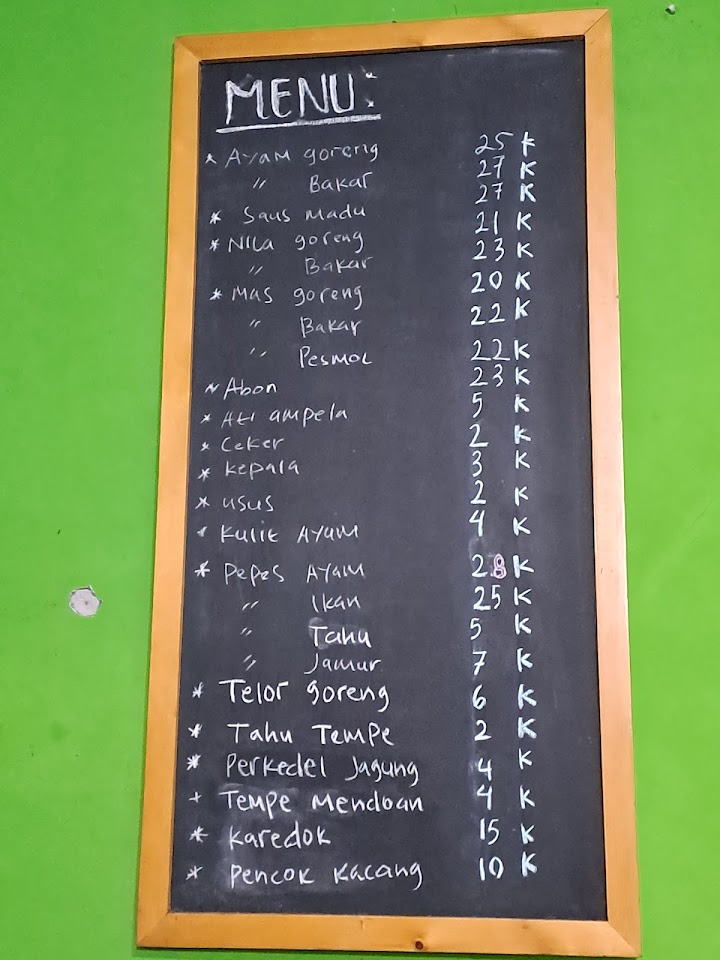 MENU:
* Ayam goreng 25 K
" Bakar 27 K
* Saus Madu 27 K
* Nila goreng 21 K
" Bakar 23 K
* Mas goreng 20 K
" Bakar 22 K
" Pesmol 22 K
* Abon 23 K
* Ati ampela 5 K
* Ceker 2 K
* Kepala 3 K
* usus 2 K
* Kulit Ayam 4 K
* Pepes Ayam 28 K
" Ikan 25 K
" Tahu 5 K
" Jamur 7 K
* Telor goreng 6 K
* Tahu Tempe 2 K
* Perkedel Jagung 4 K
+ Tempe Mendoan 4 K
* Karedok 15 K
* Pencok Kacang 10 K